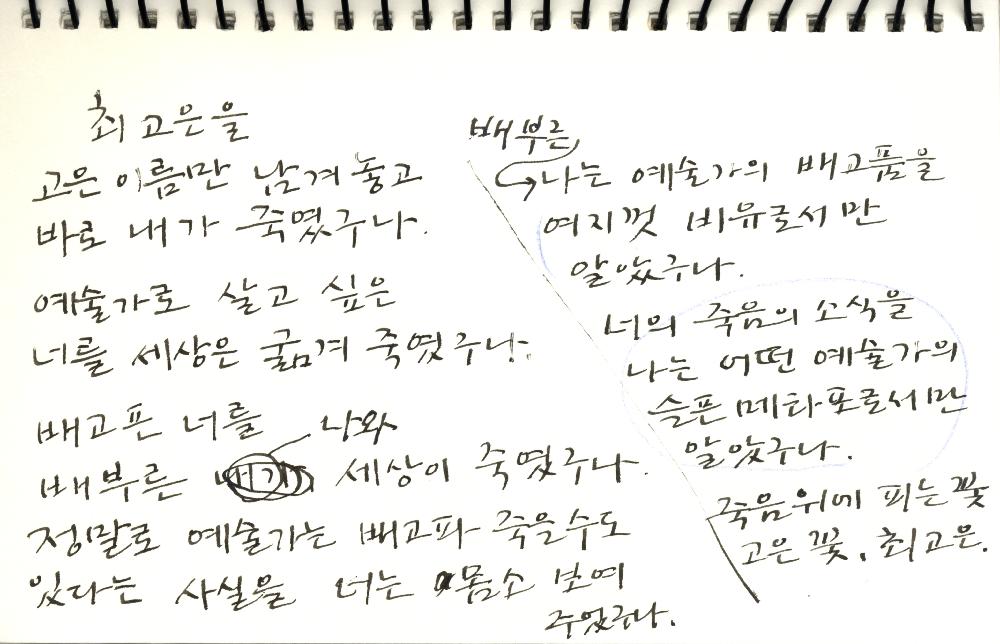 최고은을
고은 이름만 남겨놓고
바로 내가 죽였구나.
예술가로 살고 싶은
너를 세상은 굶겨 죽였구나.
배고픈 너를
나와
배부른 세상이 죽였구나.
정말로 예술가는 배고파 죽을수도
있다는 사실을 너는 몸소 보여
주었구나.
배부른
나는 예술가의 배고픔을
여지껏 비유로서만
알았구나.
너의 죽음의 소식을
나는 어떤 예술가의
슬픈 메타포로서만
알았구나.
죽음위에 피는 꽃
고은 꽃, 최고은.